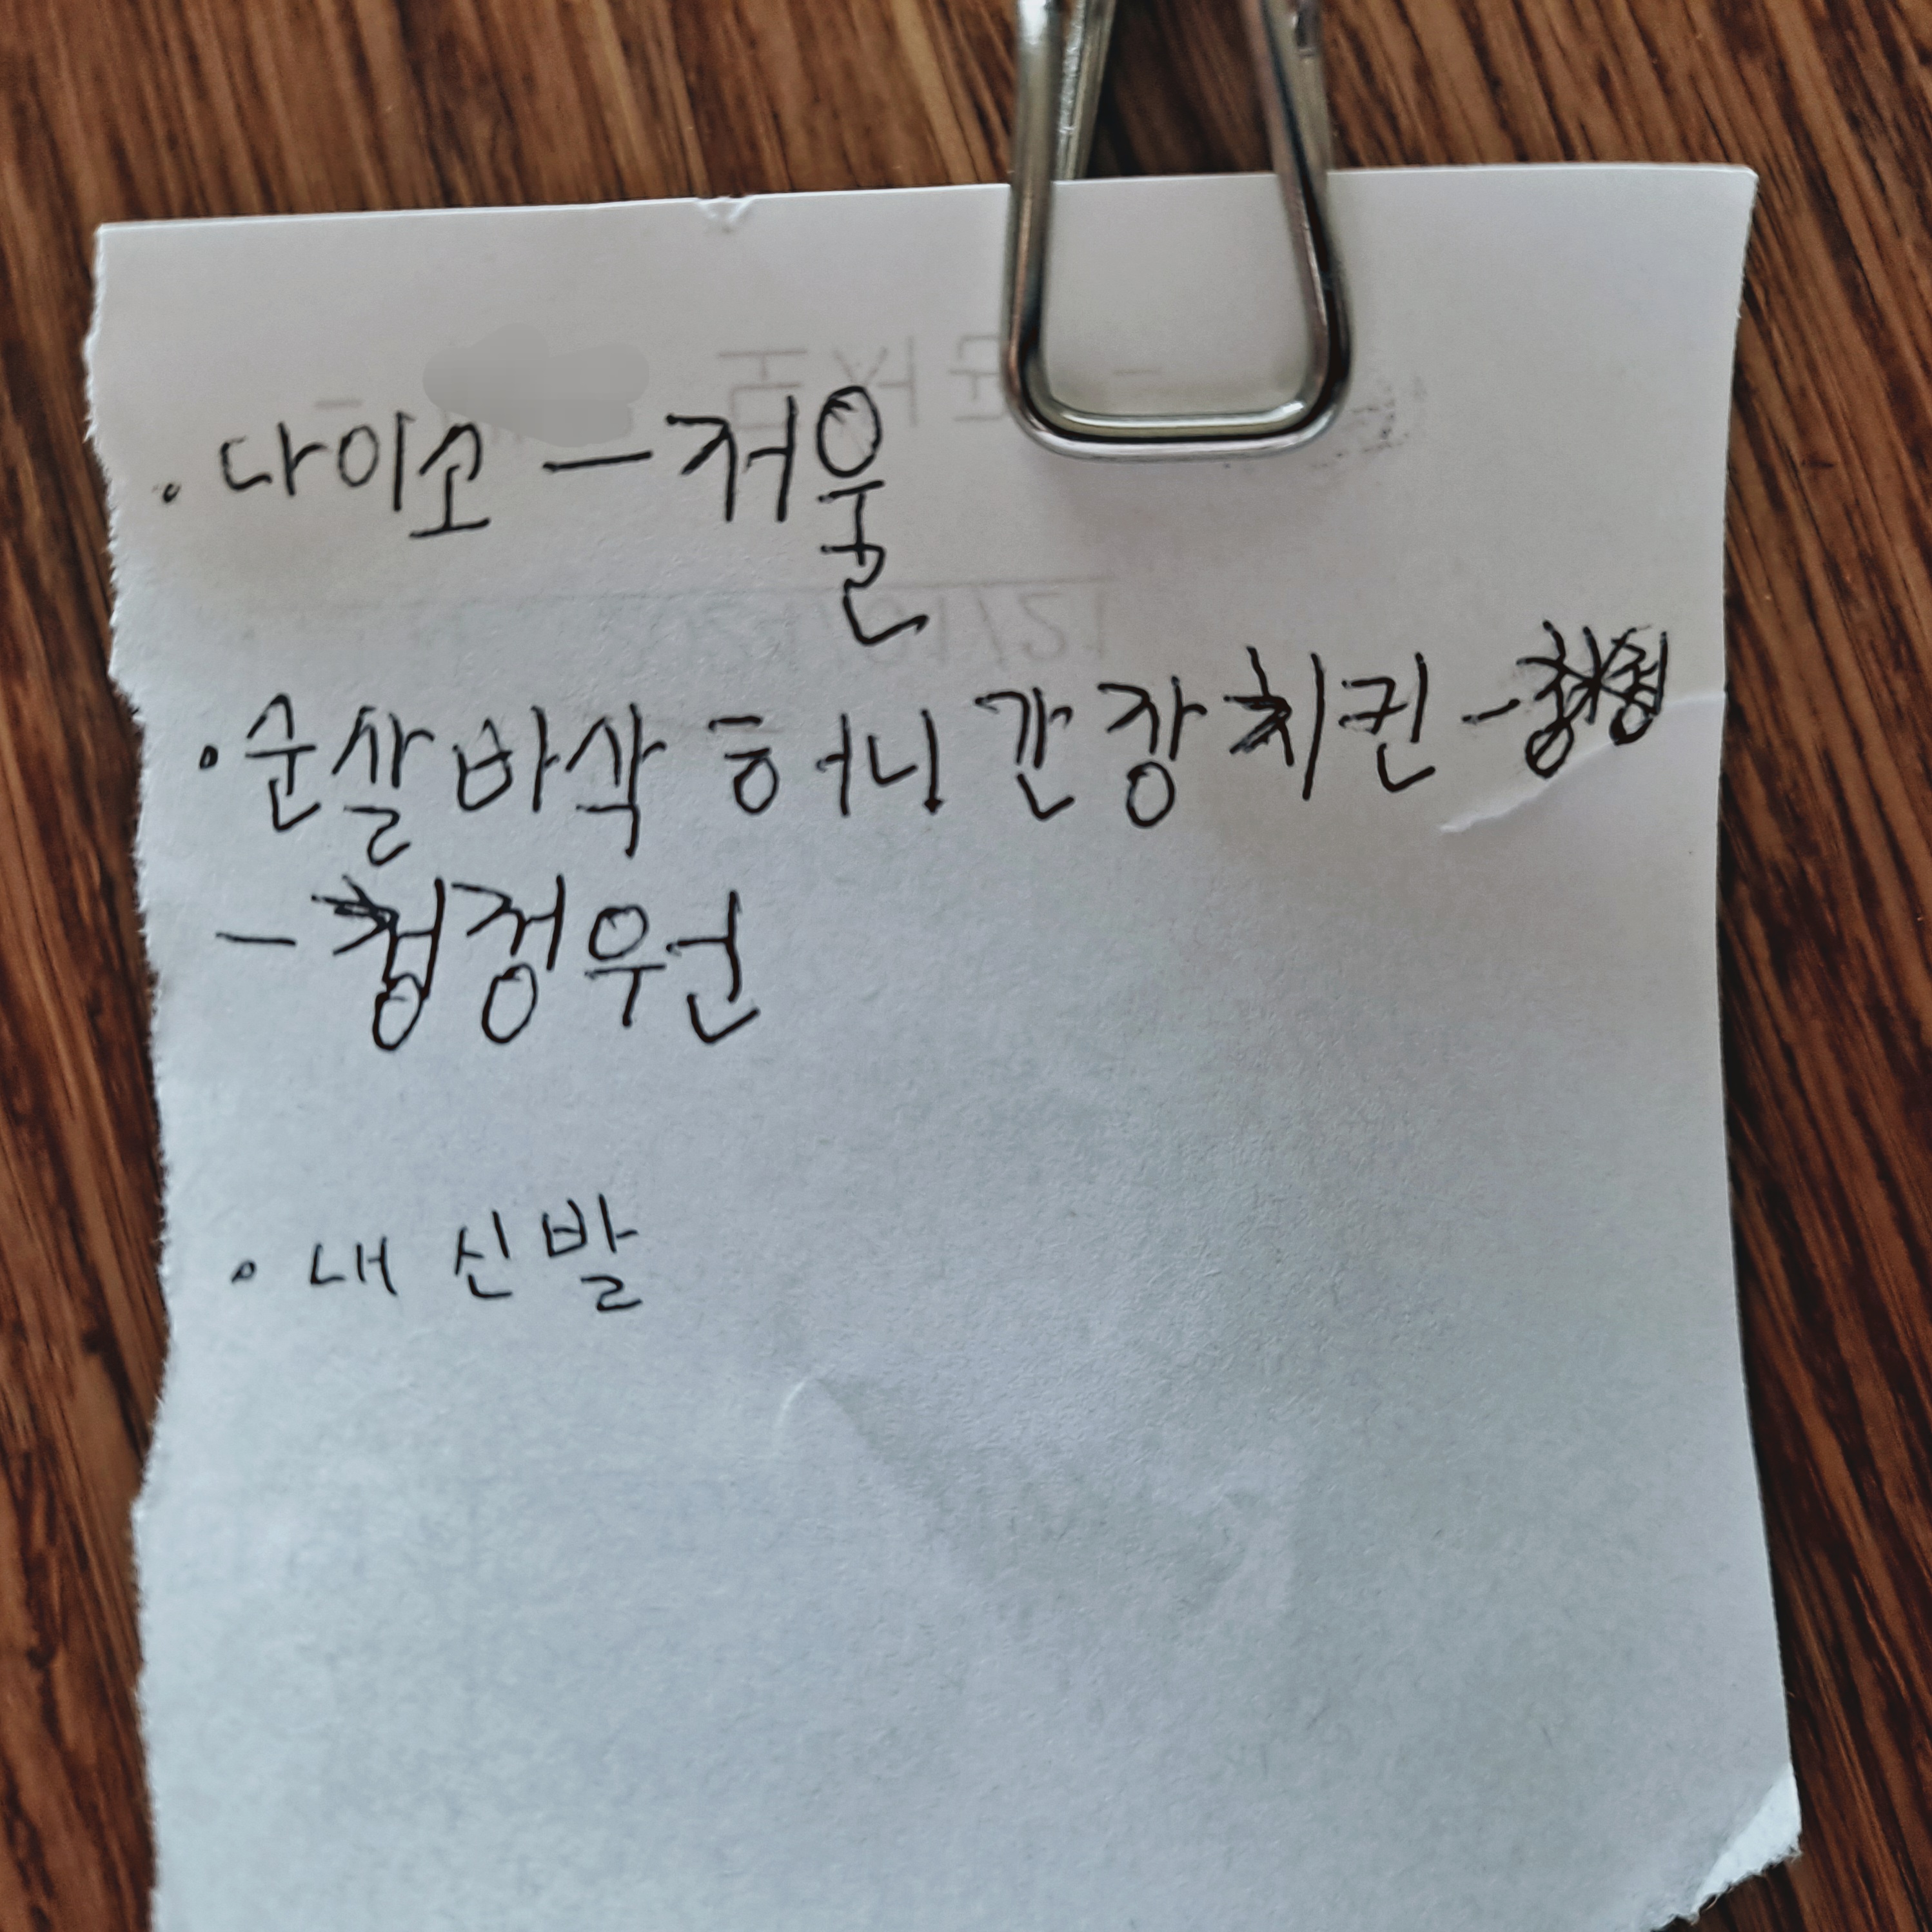 · 다이소 - 저울
· 순살 바삭 허니 간장치킨 -
- 청정원
· 내 신발